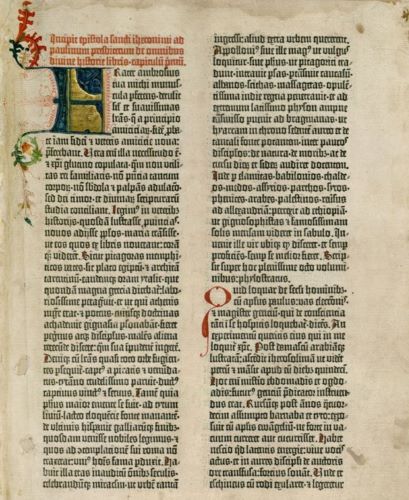 Incipit epistola sancti iheronimi ad
paulinum presbiterum de omnibus
divine historie libris capitulū pmū.
Frater ambrosius
tua michi munuscula
pferens· detulit
sīl et suavissimas
lrās· q̄ a principio
amiciciaȝ· fidē
iam fidei et veteris amicicie nova
pferebant. Vera em̄ illa necessitudo ē·
et xpī glutino copulata· qm̄ non utilitas
rei familiaris· nō pn̄cia tantum
corporȝ· nō sbdola et palpās adulacō·
sed dei timor· et divinaȝ scripturarū
studia conciliant. Legim⁹ in veterib⁹
historijs· quosdā lustrasse puincias·
novos adijsse pplos· maria trāsisse·
ut eos quos ex libris noverant: coram
qȝ viderēt. Sicut pitagoras memphiticos
vates· sic plato egiptū· et architā
tarentinū· eandemqȝ oram ytalie· que
quondā magna grecia dicebat̄: laboriosissime
peragvit· et ut qui athenis
mgr̄ erat· et potens· cuiusqȝ doctrinas
achademie gignasia psonabāt· fieret
peregrinus atqȝ discipulus· malēs aliena
verecūde discere: qm̄ sua īpudent ingerē.
Deniqȝ cū lrās quasi toto orbe fugientes
psequit̄· capt⁹ a piratis et venūdatus·
tyrāno crudelissimo paruit· duct⁹
captivus vinct⁹ et servus. Tamē quia
phūs· maior emente se fuit· ad tytum
liviū· lacteo eloquētie fonte manantē·
de ultimis hispanie galliarūqȝ finib⁹·
quosdam venisse nobiles legimus· et
quos ad cōtemplacōnē sui roma nō
traxerat: uni⁹ hoīs fama pduxit. Habuit
illa etas inauditū oīnib⁹ seculis·
celebrandūqȝ miraculū· ut urbē tantā
ingressi: aliud extra urbem quererent.
Appolloni⁹ sive ille mag⁹ ut vulgus
loquitur· sive phūs ut pitagorici tradunt·
intravit psas· ptrāsivit caucasū·
albanos· scithas· massagetas· opulentissima
indie regna penetravit· et ad
extremum latissimo physon ampne
trāsmisso puenit ad bragmanas· ut
hyarcam in throno sedentē aureo et de
tantali fonte potantem· inter paucos
discipulos· de natura· de moribȝ· ac de
cursu dierū et siderū audiret docentem.
Inde p elamitas· babilonios· chaldeos·
medos· assyrios· parthos· syros·
phenices· arabes· palestinos· reversus
ad allexandriā: perrexit ad ethiopiā·
ut gignosophistas et famosissimam
solis mensam videret in sabulo. Invenit
ille vir ubiqȝ qd̄ disceret: et semp
proficiēs· semp se melior fieret. Scripsit
super hoc plenissime octo voluminibus:
phylostratus.
Quid loquar de secli hominibȝ·
cū apłus paulus· vas electōnis·
et magister genciū· qui de consciencia
tāti ī se hospitis loquebat̄· dicēs. An
experimentū queritis eius qui in me
loquit̄ xpc̄. Post damascū arabiāqȝ
lustratā: ascēdit iherosolimā ut videret
petrū et māsit apud eū dieb⁹ quindeci.
Hoc em̄ misterio ebdomadis et ogdoadis:
futur⁹ genciū pdicator instruendus
erat. Rursūqȝ post ānos qͣtuordecim
assumpto barnaba et tyto: exposuit
cū apłis euāgeliū· ne forte in vacuum
curreret aut cucurrisset. Habet
nescio qͥd latentis energie: vive vocis
actus· et in aures discipli de auctoris
ore transfusa: forcius sonat. Unde et
eschineus cū rodi exularet· et legeretur